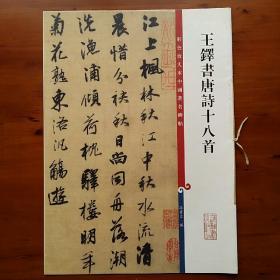 王鐸書唐詩十八首
彩色放大本中國著名碑帖
江上楓林秋江中秋水流清
晨惜分袂秋日尚同舟落潮
洗漁浦傾荷枕驛樓明年
菊花熟東洛汎觴遊